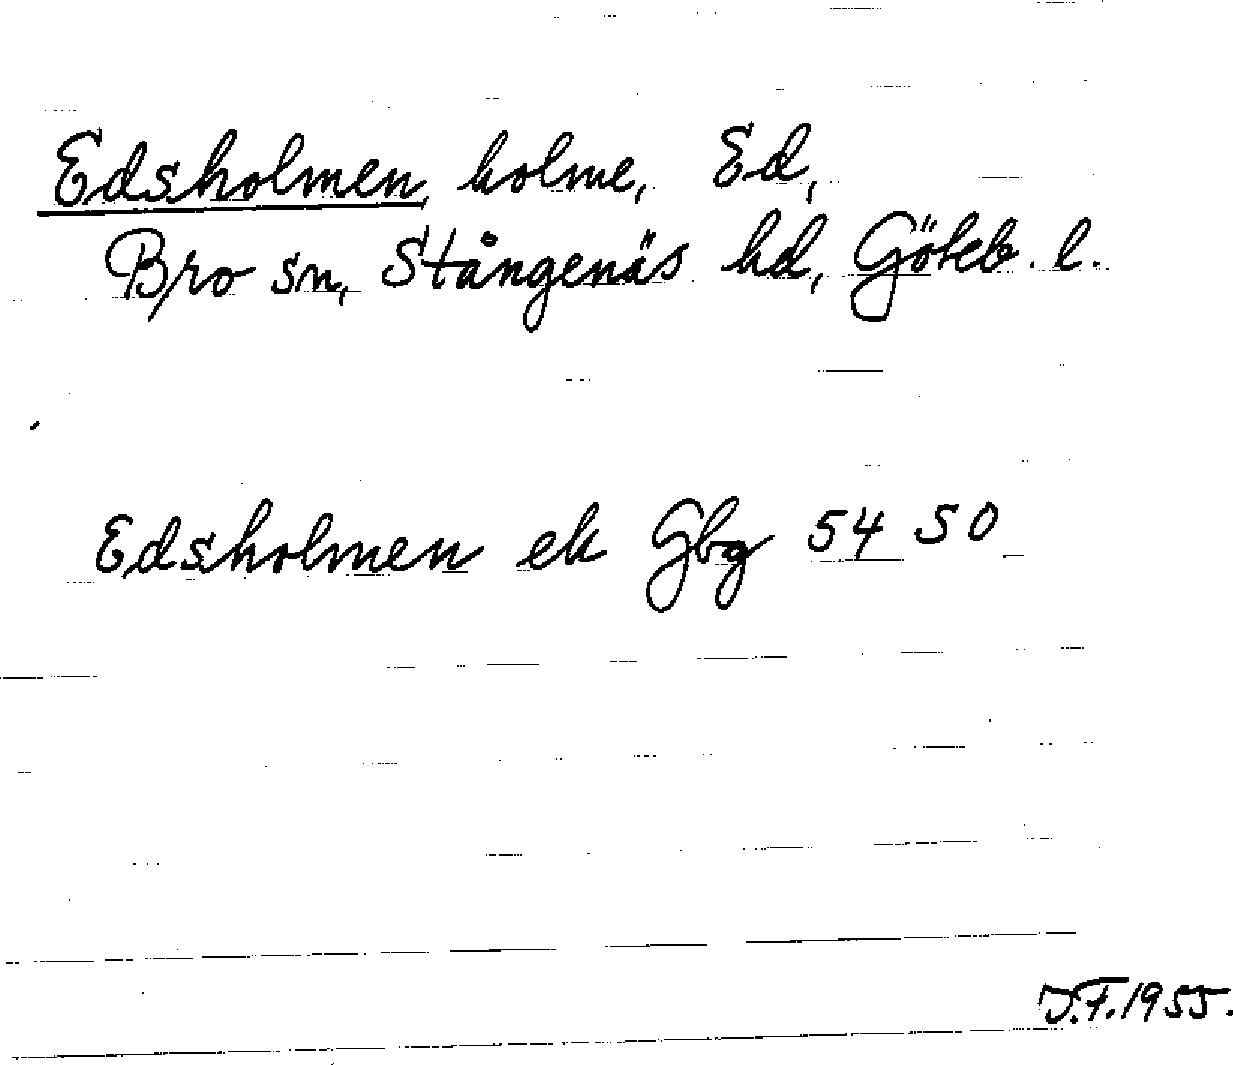 Edsholmen, holme, Ed,
Bro sn, Stångenäs hd, Göteb. l.
Edsholmen ek Gbg 54 50
J.F. 1955.